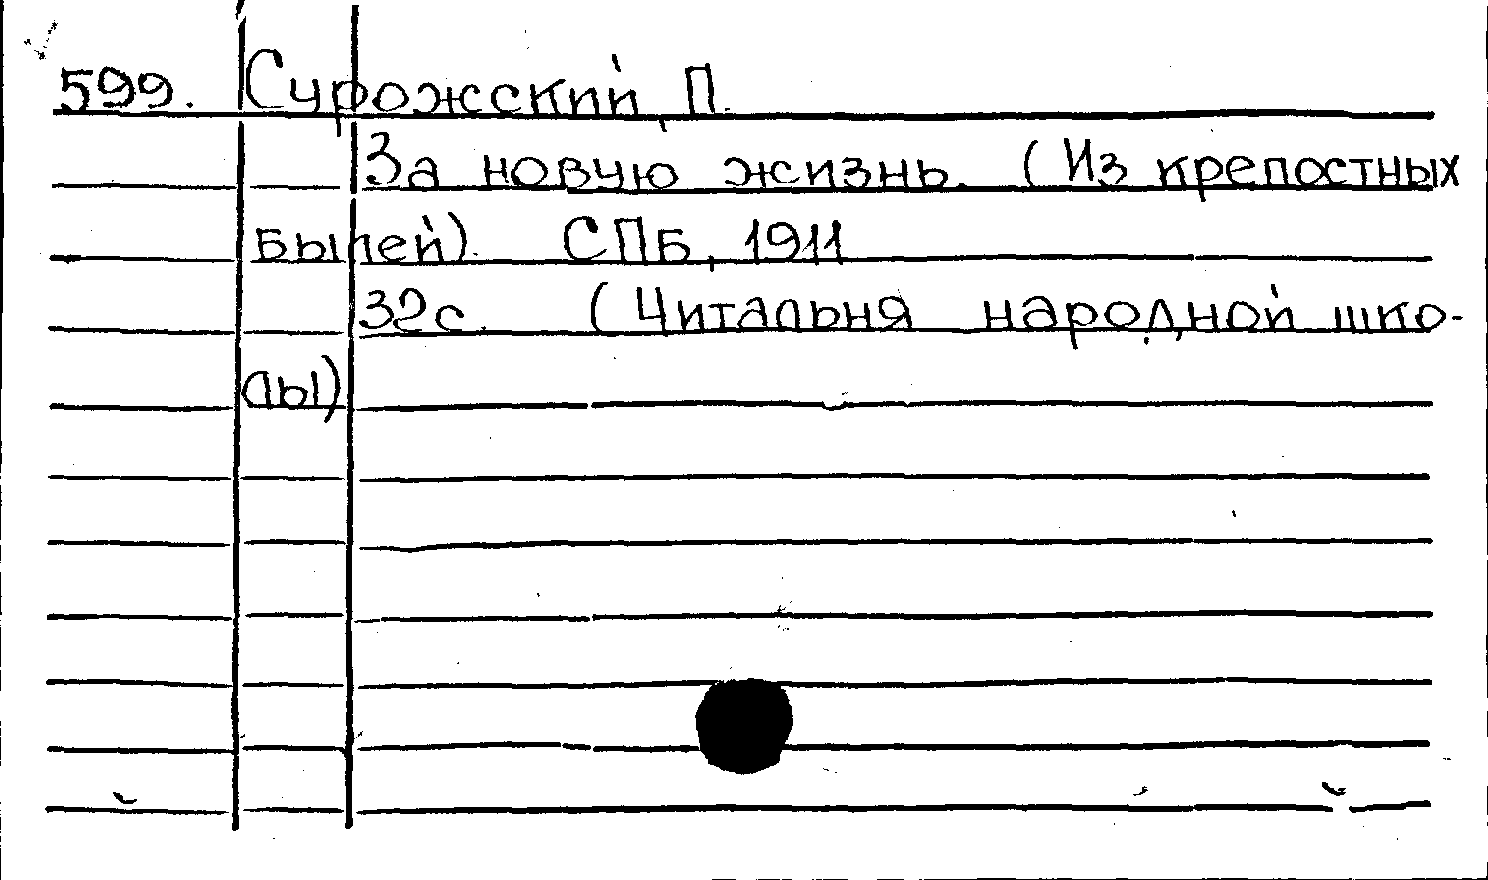 599. Сурожский, П.
За новую жизнь. (Из крепостных
былей). СПБ, 1911
32с. (Читальня народной шко-
лы)